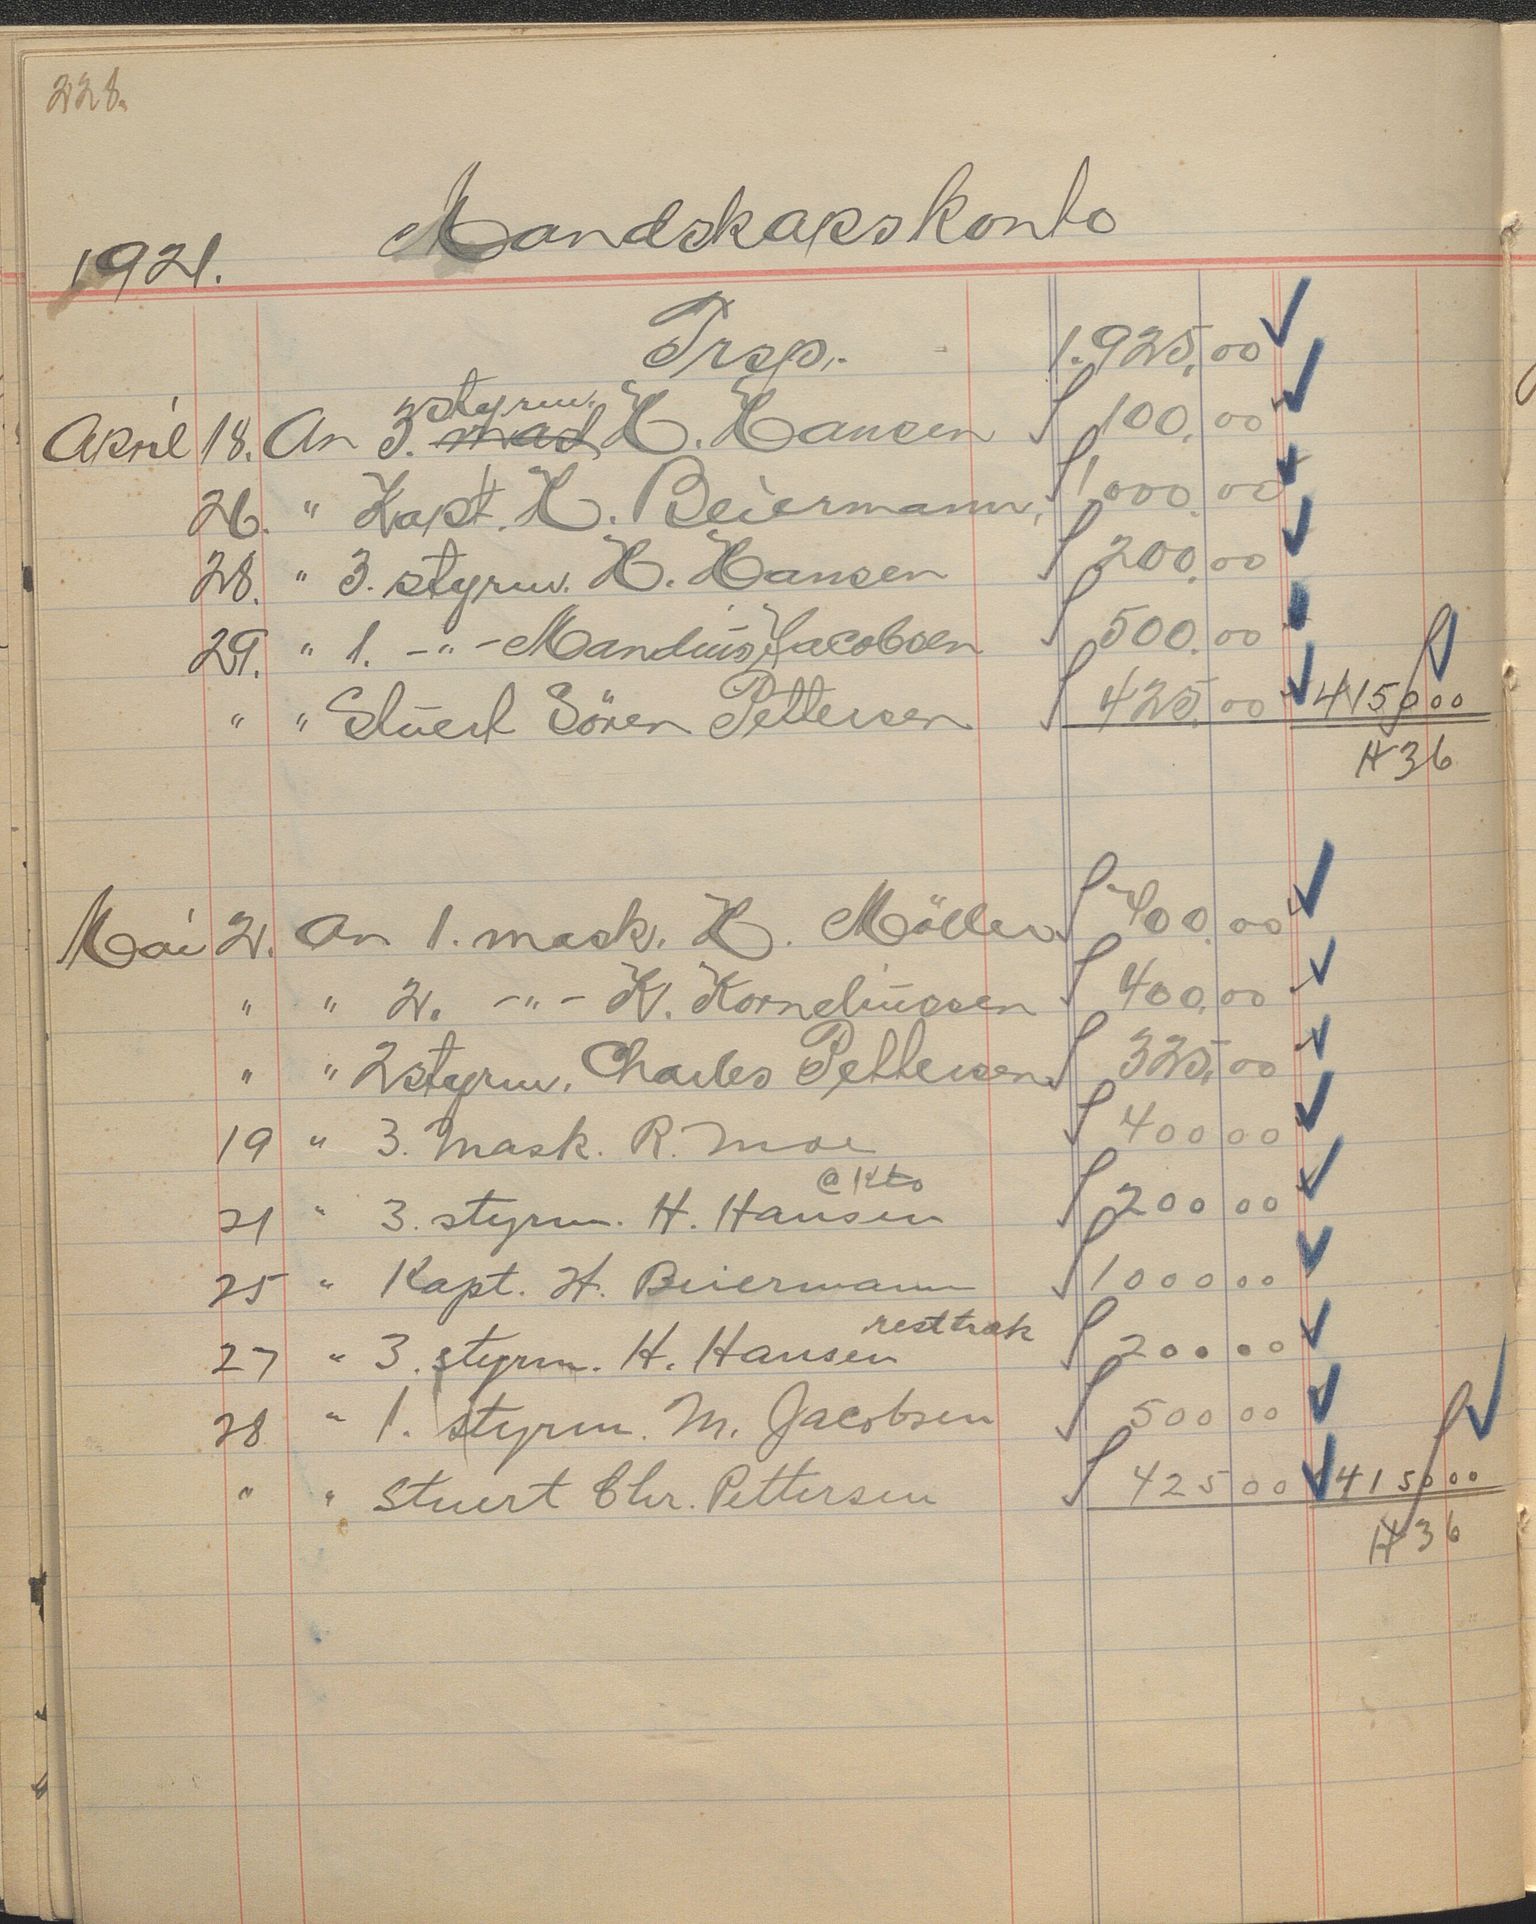 228.
Mandskapskonto
1921.
Trsp. - 1.925.00
April 18. An 3. styrm. mask H. Hansen 100.00
26. " Kapt. H. Beiermann, 1000.00
28. " 3. styrm. H. Hansen 200.00
29. " 1. -"- Mandius Jacobsen 500.00
" " Stuert Sören Pettersen 425.00 4150 00
H 36
Mai 2. An 1. mask. H. Möller 400.00
" " 2. -"- K. Korneliussen 400.00
" " 2 styrm. Charles Pettersen 325.00
19 " 3. Mask. R. Moe 400 00
@ Kto
21 " 3. styrm. H. Hansen 200 00
25 " Kapt. H. Beiermann 1000 00
resttræk
27 " 3. styrm. H. Hansen 200 00
28 " 1. styrm. M. Jacobsen 500 00
" " Stuert Chr. Pettersen 425 00 4150 00
H 36